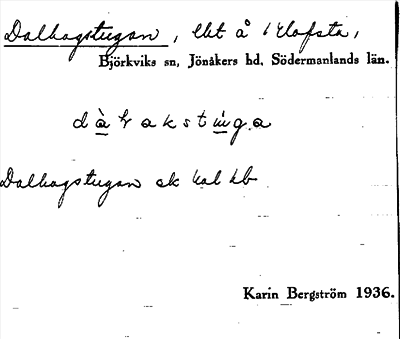 Dalhagstugan, lht å Klofsta,
Björkviks sn, Jönåkers hd, Södermanlands län.
Dalhagstugan ek kal hb
Karin Bergström 1936.